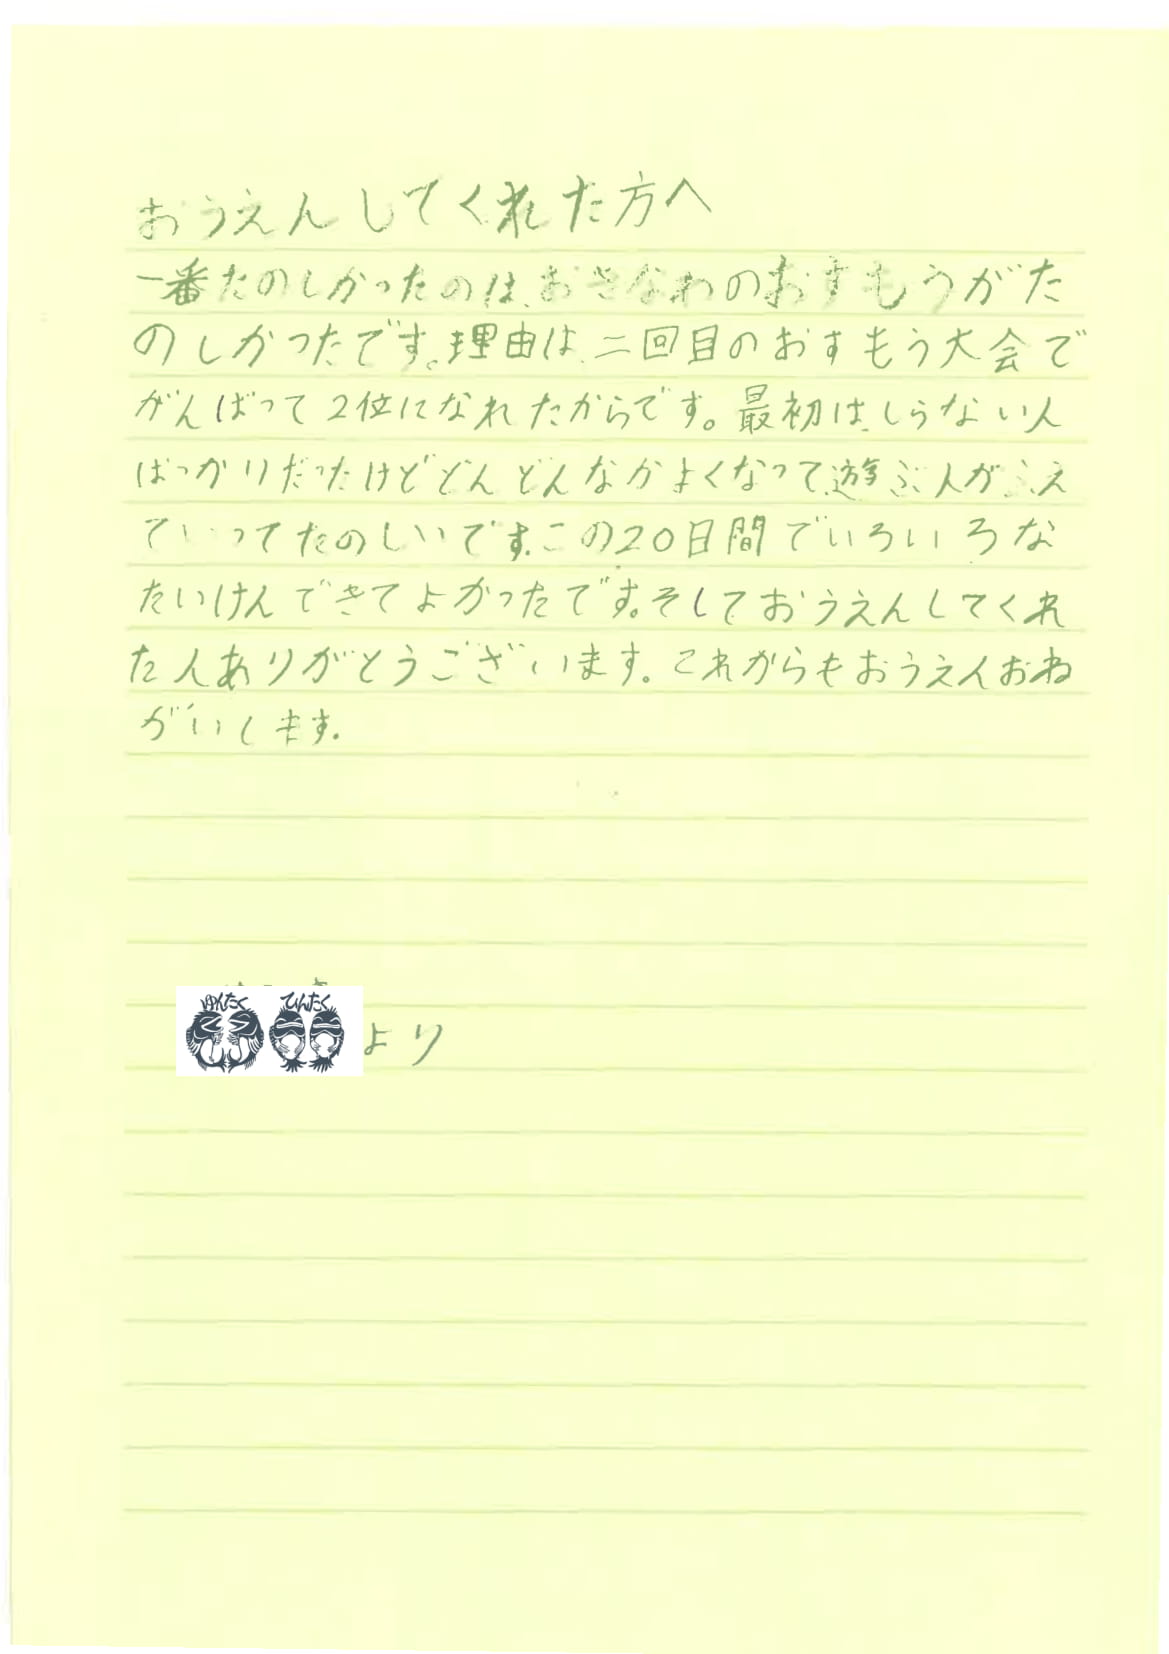 おうえんしてくれた方へ
一番たのしかったのは、おきなわのおすもうがた
のしかったです。理由は、二回目のおすもう大会で
がんばって2位になれたからです。最初は、しらない人
ばっかりだったけどどんどんなかよくなって、遊ぶ人がふえ
ていってたのしいです。この20日間でいろいろな
たいけんできてよかったです。そしておうえんしてくれ
た人ありがとうございます。これからもおうえんおね
がいします。
ゆんたく ひんたく より